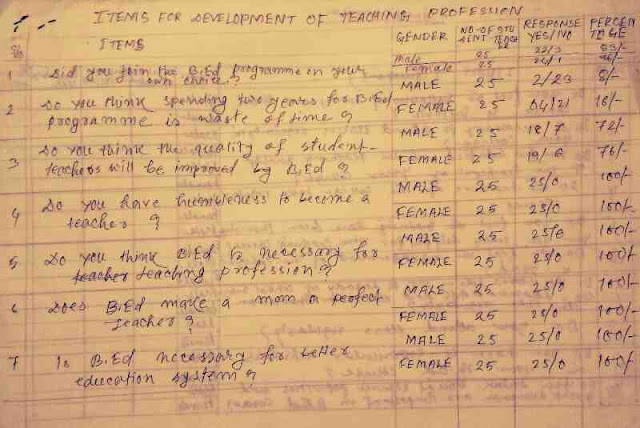 ITEMS FOR DEVELOPMENT OF TEACHING PROFESSION
ITEMS GENDER NO-OF STUDENT TEACHER RESPONSE YES/NO PERCENTAGE
Male 25 22/3
1 Did you join the B.Ed programme on your Female 25 24/1
own choice? MALE 25 2/23 8/-
2 Do you think spending two years for B.Ed FEMALE 25 04/21 16/-
programme is waste of time? MALE 25 18/7 72/-
3 Do you think the quality of student- FEMALE 25 19/6 76/-
teachers will be improved by B.Ed? MALE 25 25/0 100/-
4 Do you have humbleness to become a FEMALE 25 25/0 100/-
teacher? MALE 25 25/0 100/-
5 Do you think B.Ed is necessary for FEMALE 25 25/0 100/-
teacher teaching profession? MALE 25 25/0 100/-
6 Does B.Ed make a mom a perfect FEMALE 25 25/0 100/-
teacher? MALE 25 25/0 100/-
7 Is B.Ed necessary for better FEMALE 25 25/0 100/-
education system?